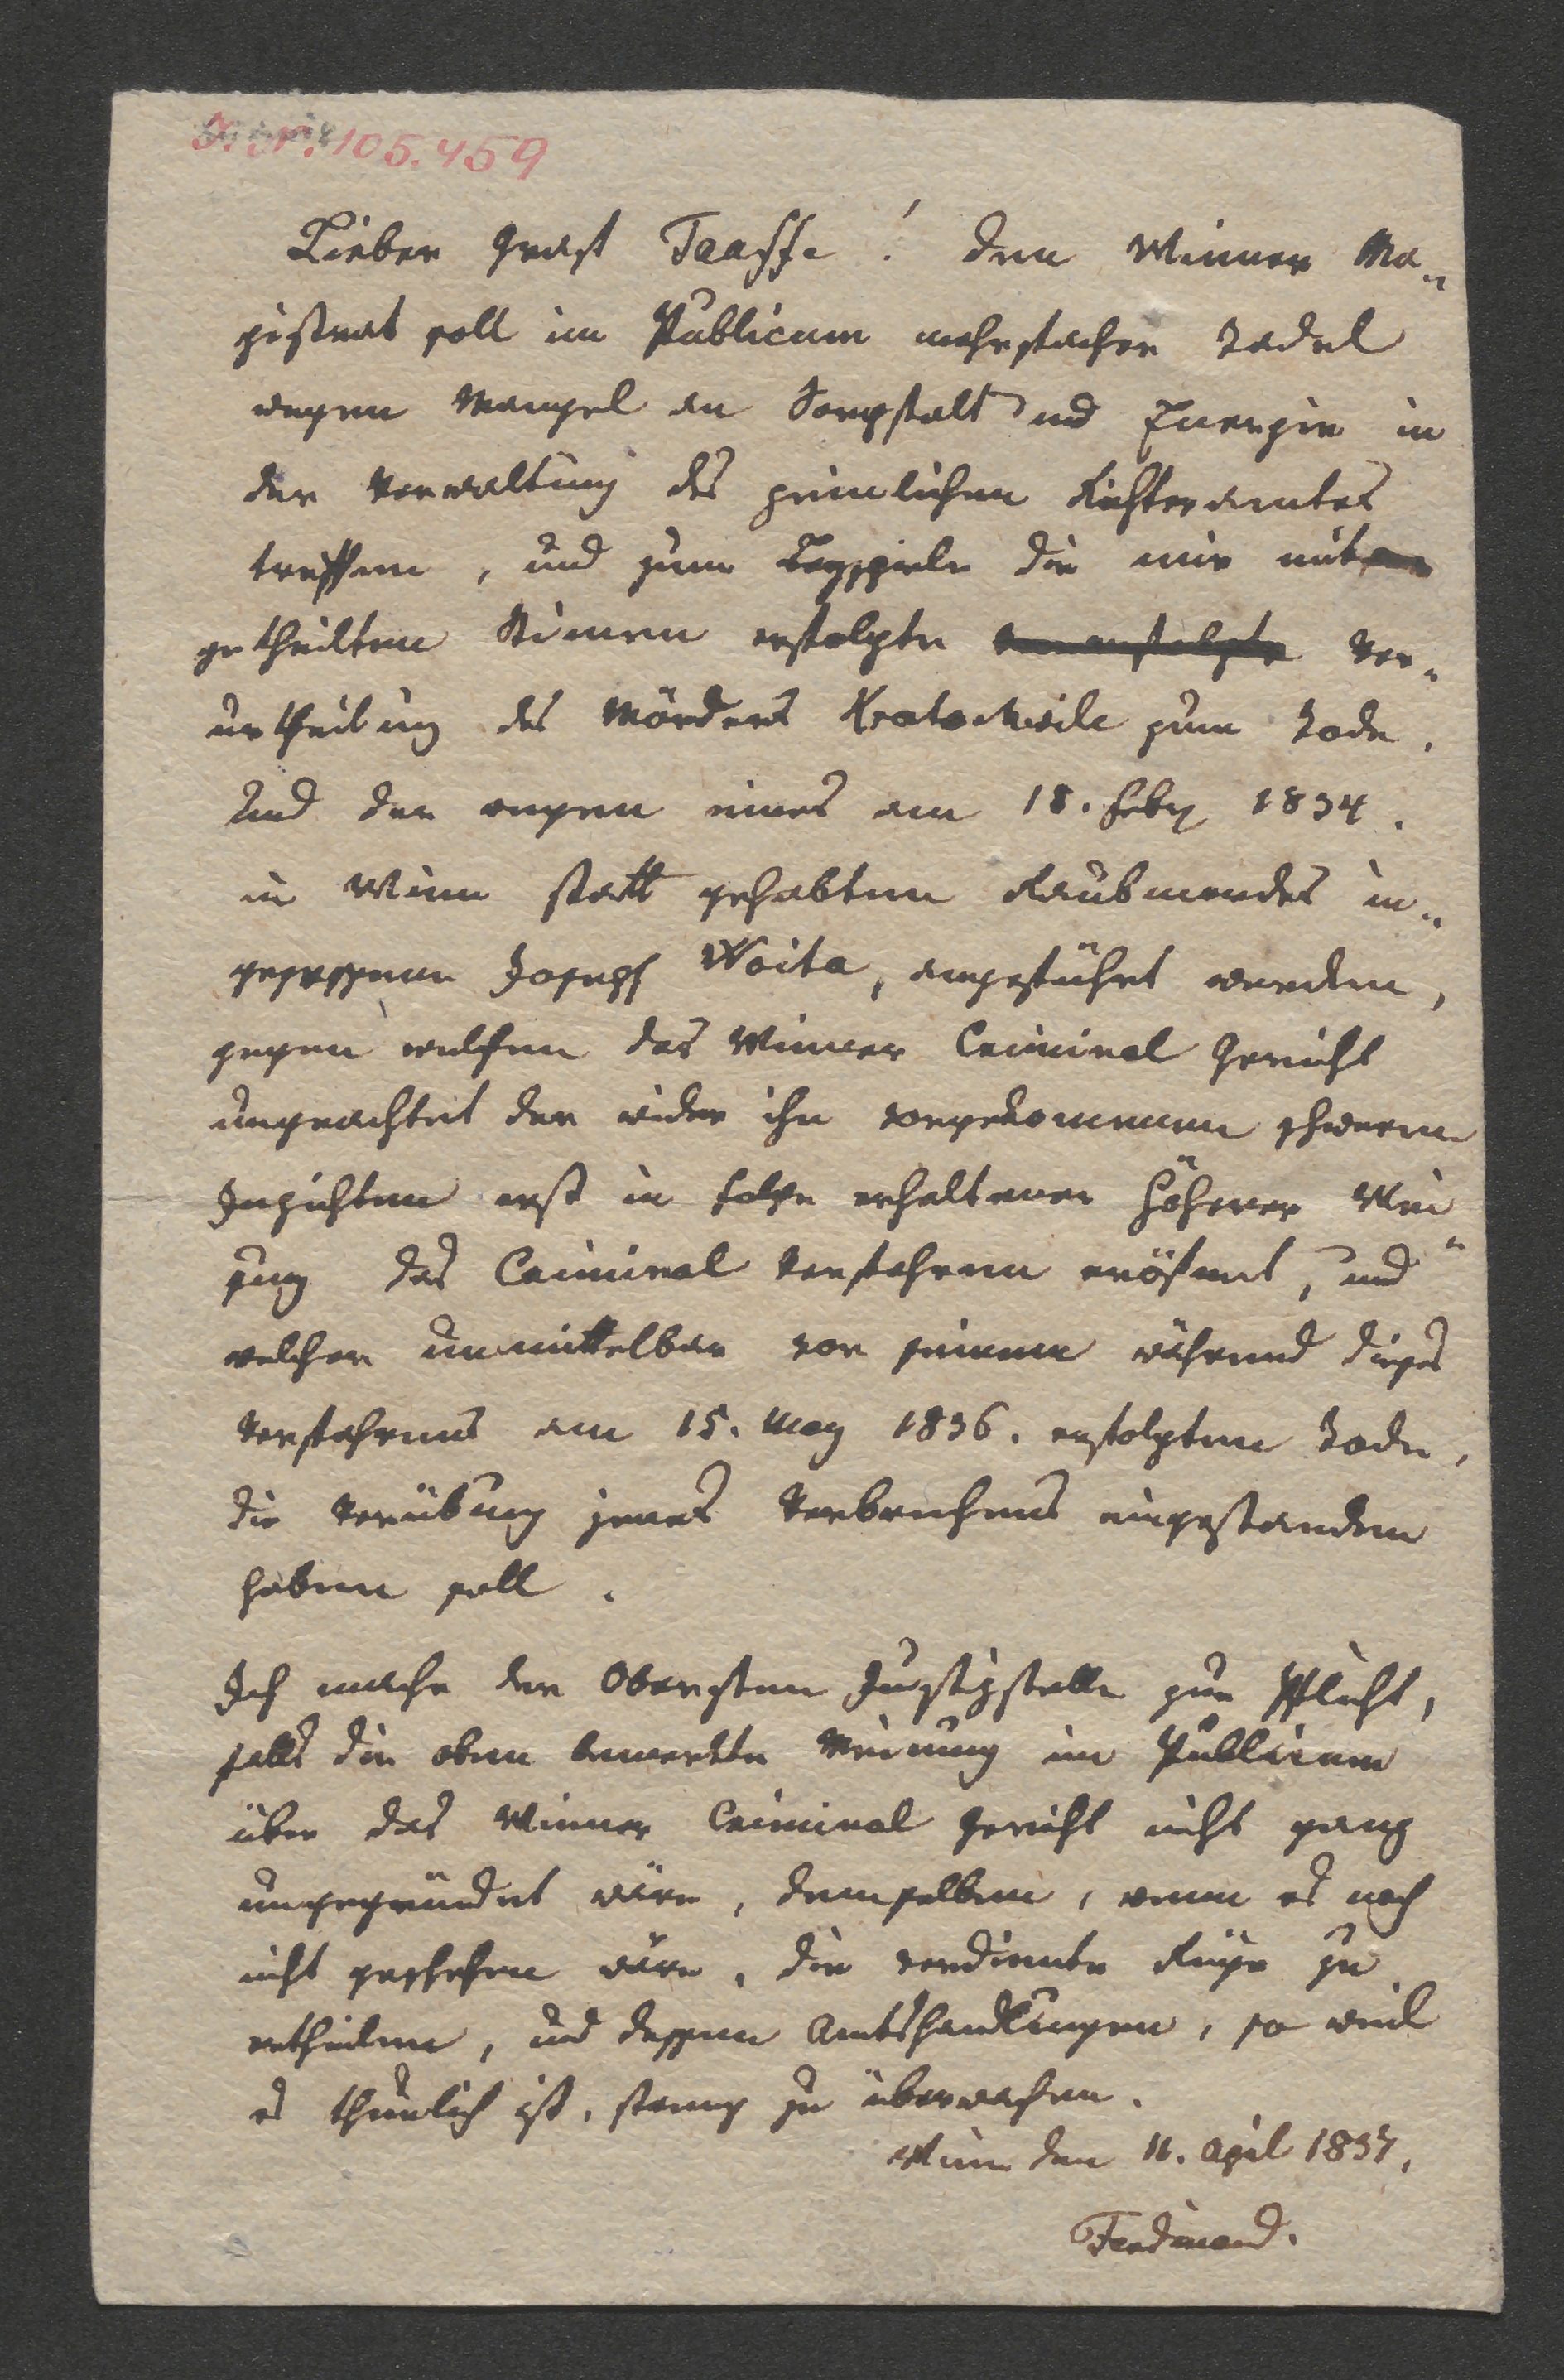 105.459
Lieber Graf Taaffe! den Wiener Ma„
gistrat soll im Publicum mehrfacher Tadel
wegen Mangel an Sorgfalt und Energie in
der Verwaltung des peinlichen Richteramtes
treffen, und zum Beyspiele die mir mit
getheilten Stimen erfolgte Ver„
urtheilung des Mörders Kratochwile zum Tode.
und der wegen eines am 18. Feby 1834.
in Wien statt gehabten Raubmordes in„
gesessenen Joseph Woita, angeführt werden,
gegen welchen das Wiener Criminal Gericht
ungeachtet der wider ihn vorgekommenen schweren
Inzichten erst in Folge erhaltener höherer Wei„
sung das Criminal Verfahren eröfnet, und
welcher unmittelbar vor seinem während dieses
Verfahrens am 15. May 1836. erfolgten Tode,
die Verübung jenes Verbrechens eingestanden
haben soll.
Ich mache der Obersten Justizstelle zur Pflicht,
falls die oben bemerkte Meinung im Publicum
über das Wiener Criminal Gericht nicht ganz
ungegründet wäre, demselben, wenn es noch
nicht geschehen wäre, die verdiente Rüge zu
ertheilen, und dessen Amtshandlungen, so weit
es thunlich ist, streng zu überwachen.
Wien den 11. April 1837.
Ferdinand.